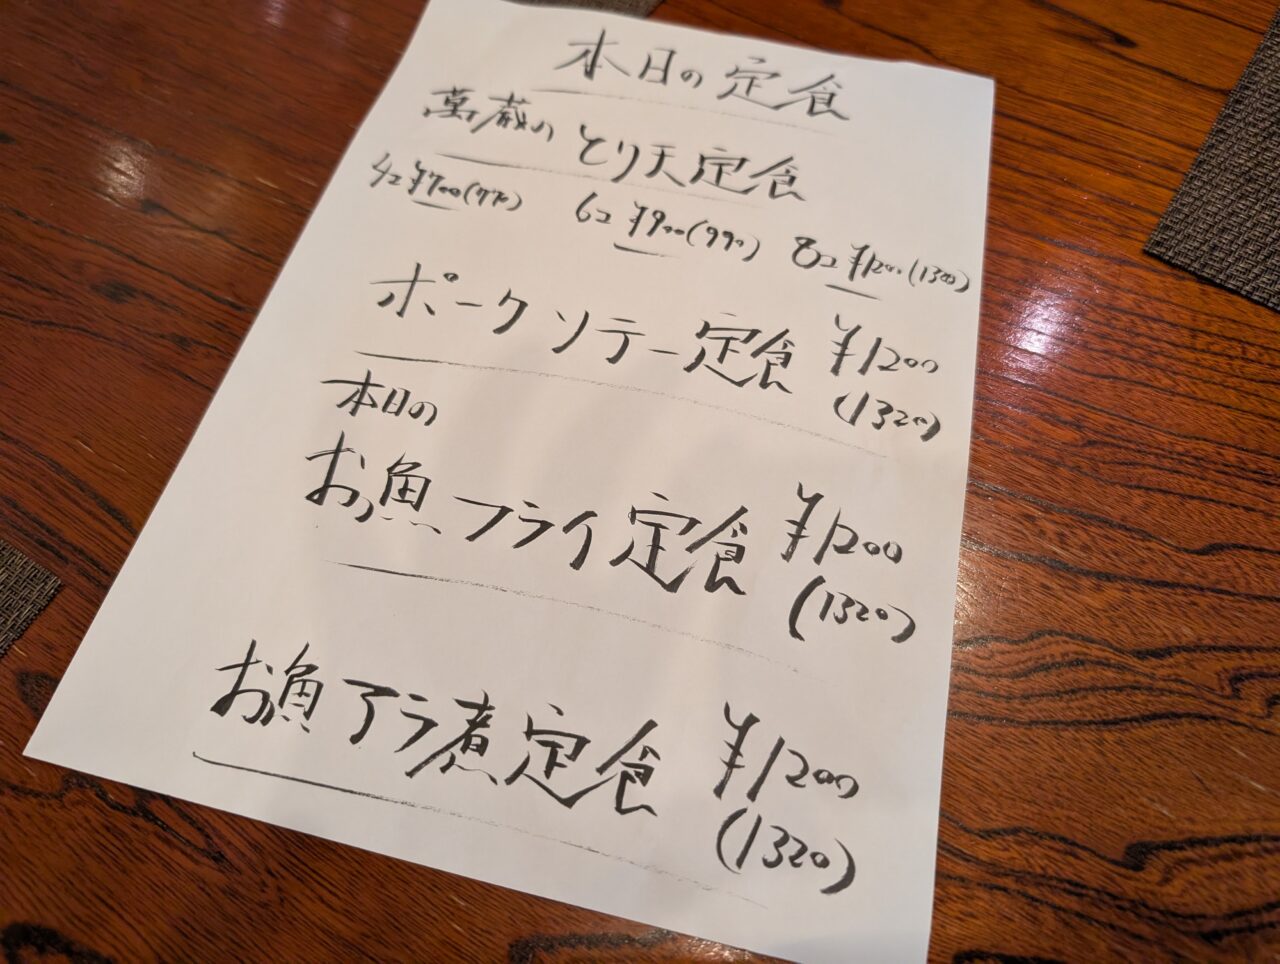 本日の定食
萬蔵の とり天定食
4コ ¥700(770) 6コ ¥900(990) 8コ ¥1200(1300)
ポークソテー定食 ¥1200
(1320)
本日の
お魚フライ定食 ¥1200
(1320)
お魚アラ煮定食 ¥1200
(1320)